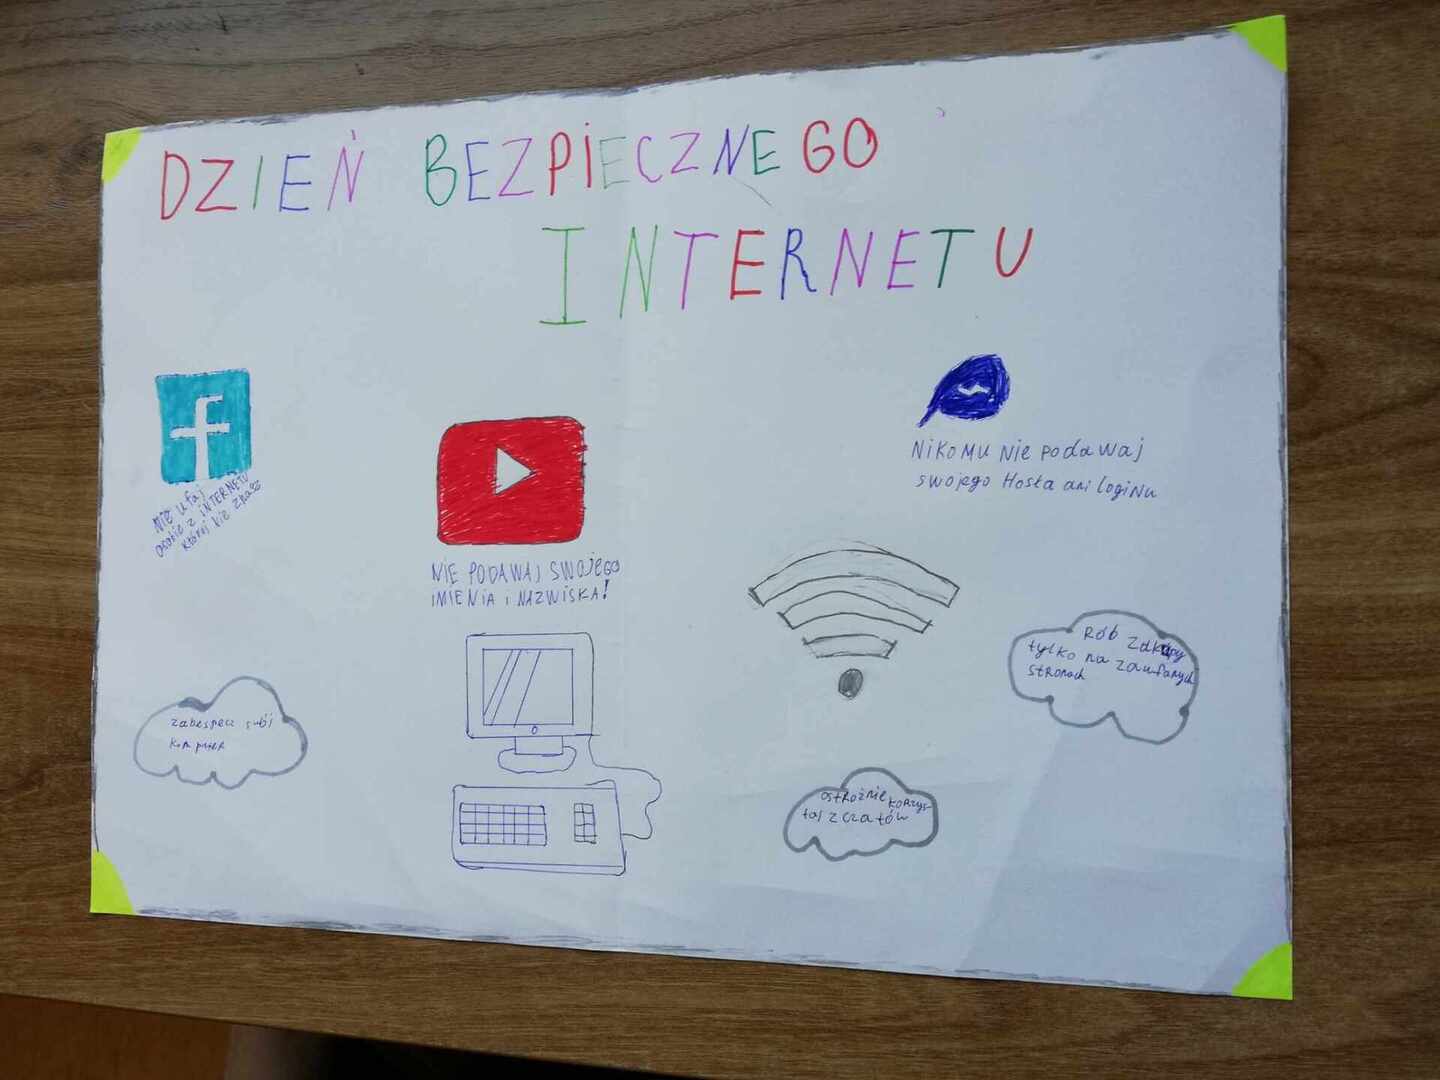 DZIEŃ BEZPIECZNEGO
INTERNETU
f
NIE Ufaj
osobie z INTERNETU
której nie znasz
NIE PODAWAJ SWOJEGO
IMIENIA i NAZWISKA!
NiKOMU Nie podawaj
swojego Hosła ani loginu
Rób zdkupy
tylko na zaufanych
stronach
zabespecz subj
komputer
ostrożnie korzys-
taj z czatów